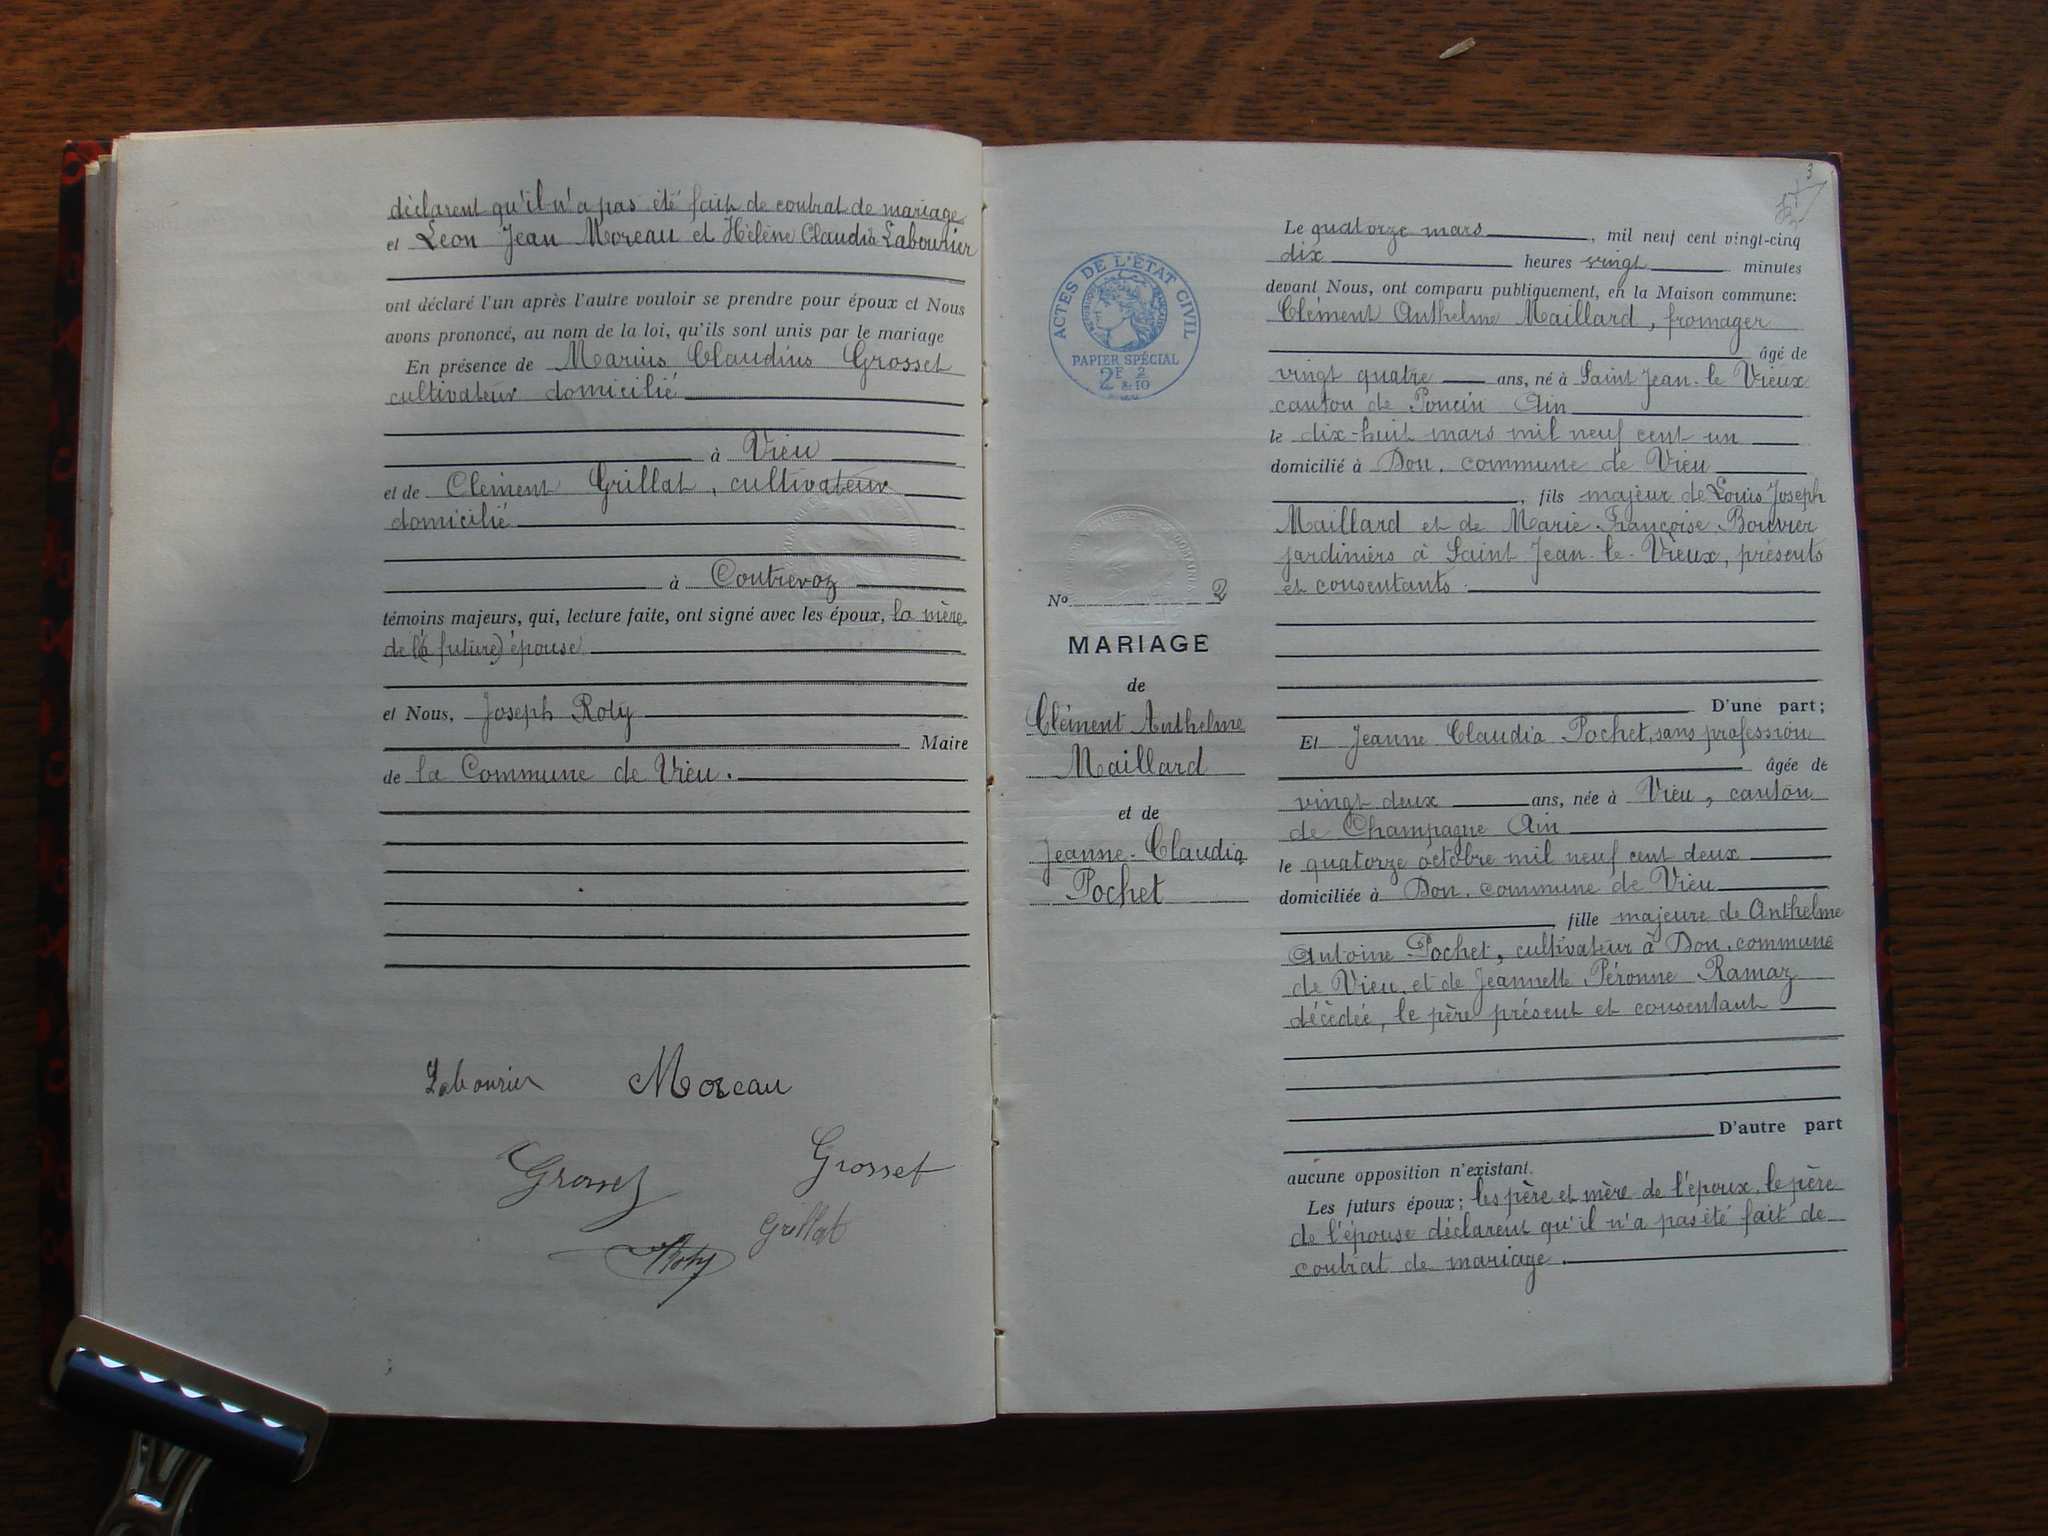 déclarent qu'il n'a pas été fait de contrat de mariage
et Léon Jean Moreau et Hélène Claudia Labourier
ont déclaré l'un après l'autre vouloir se prendre pour époux et Nous
avons prononcé, au nom de la loi, qu'ils sont unis par le mariage
En présence de Marius Claudius Grosset
cultivateur domicilié
à Vieu
et de Clément Grillat, cultivateur
domicilié
à Contrevoz
témoins majeurs, qui, lecture faite, ont signé avec les époux, la mère
de l(a future) épouse
et Nous, Joseph Roty
Maire
de la Commune de Vieu.
Labourier Moreau
Grosset Grosset
Grillat
Roty
3
ACTES DE L'ÉTAT CIVIL
PAPIER SPÉCIAL
2F 2
&10
No 2
MARIAGE
de
Clément Anthelme
Maillard
et de
Jeanne-Claudia
Pochet
Le quatorze mars, mil neuf cent vingt-cinq
dix heures vingt minutes
devant Nous, ont comparu publiquement, en la Maison commune:
Clément Anthelme Maillard, fromager
âgé de
vingt quatre ans, né à Saint Jean-le Vieux
canton de Poncin Ain
le dix-huit mars mil neuf cent un
domicilié à Don, commune de Vieu
, fils majeur de Louis Joseph
Maillard et de Marie-Françoise Bouvier
jardiniers à Saint Jean-le-Vieux, présents
et consentants.
D'une part;
Et Jeanne Claudia Pochet, sans profession
âgée de
vingt deux ans, née à Vieu, canton
de Champagne Ain
le quatorze octobre mil neuf cent deux
domiciliée à Don, commune de Vieu
, fille majeure de Anthelme
Antoine Pochet, cultivateur à Don, commune
de Vieu, et de Jeannette Péronne Ramaz
décédée, le père présent et consentant
D'autre part
aucune opposition n'existant.
Les futurs époux; les père et mère de l'époux, le père
de l'épouse déclarent qu'il n'a pas été fait de
contrat de mariage.